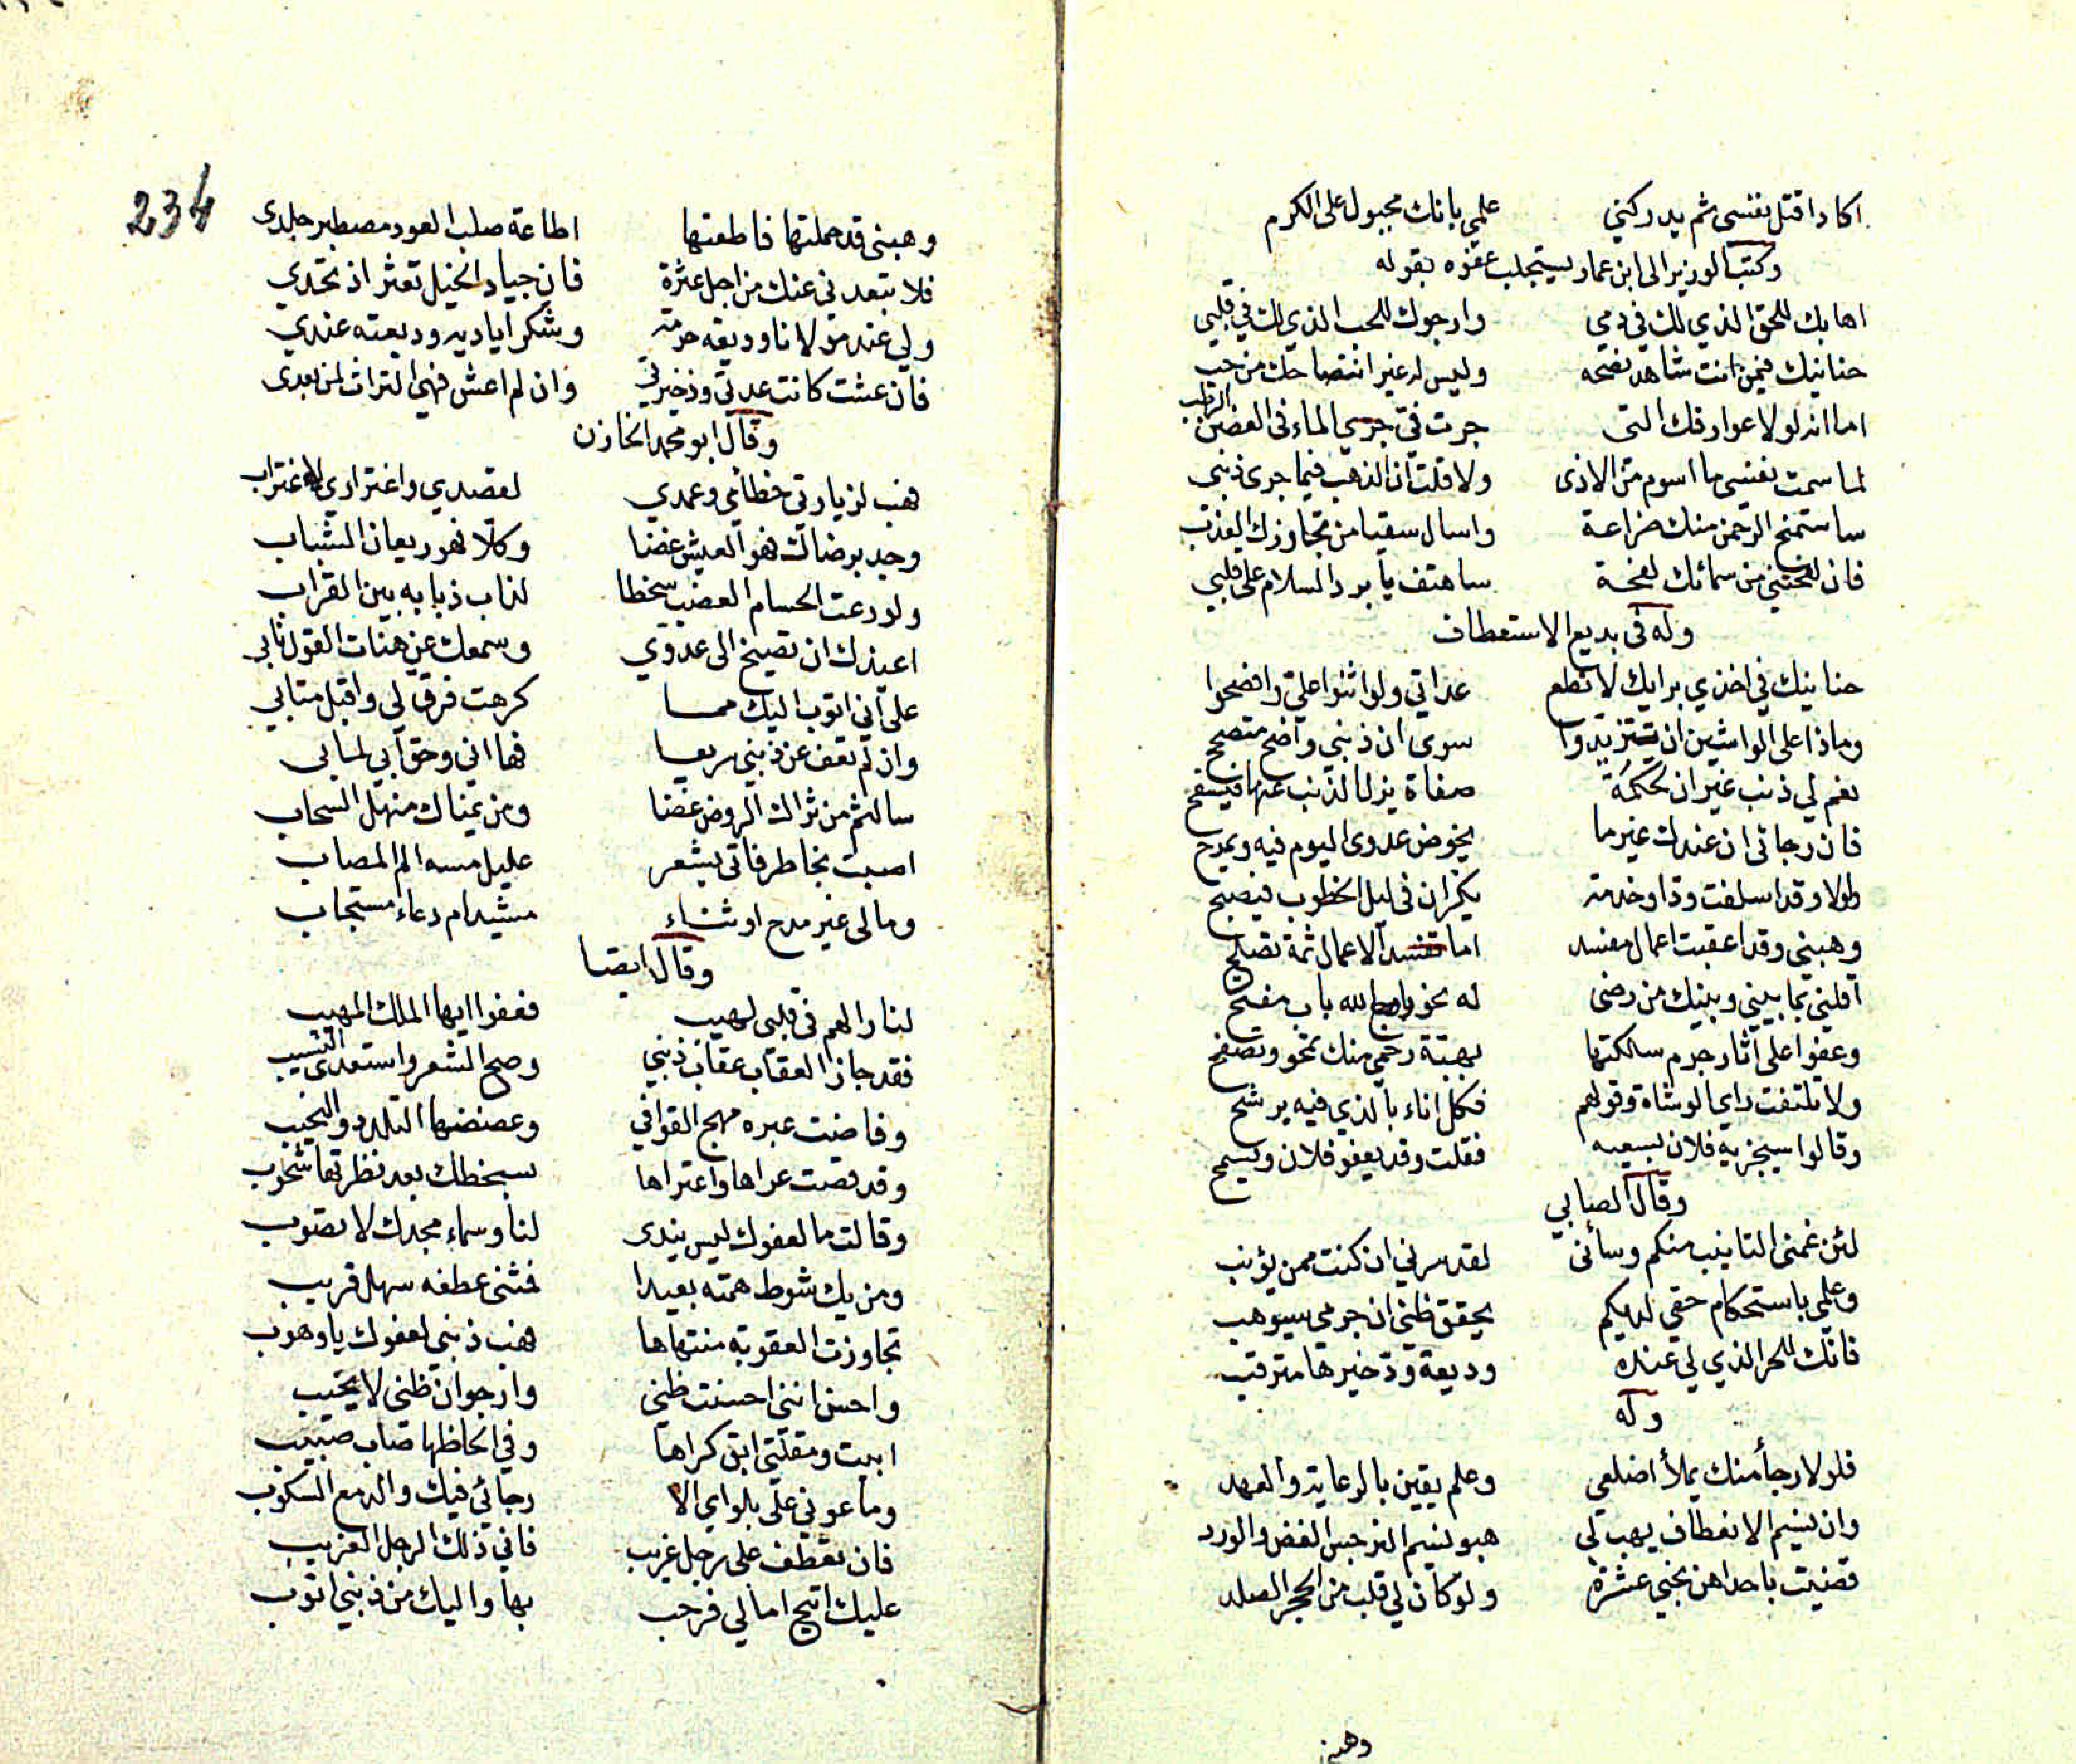 اكاد اقتل نفسى ثم يدركني علمي بانك مجبول على الكرم
وكتب الوزير الى ابن عمار يستجلب عفوه بقوله
اهابك للحق الذي لك في دمي وارجوك للحب الذي لك في قلبي
حنانيك فيمن انت شاهد نصحه وليس له غير انتصاحك من حب
اما انه لولا عوارفك التى جرت فيّ جرى الماء فى الغصن الرطب
لما سمت نفسي ما اسوم من الاذى ولا قلت ان الذنب فيما جرى ذنبي
ساستمنح الرحمن منك ضراعة واسال سقيا من تجاوزك العذب
فان نفحتني من سمائك نفحة ساهتف يا برد السلام على قلبي
وله فى بديع الاستعطاف
حنانيك في اخذي برايك لا تطع عداتي ولو اثنوا علىّ وافصحوا
وماذا على الواشين ان يتزيدوا سوى ان ذنبي واضح متصحح
نعم لي ذنب غير ان لحكمة صفاة يزل الذنب عنها فيسفح
فان رجائى ان عندك غير ما يخوض عدوى اليوم فيه ويمرح
ولم لا وقد اسلفت ودا وخدمة يكران فى ليل الخطوب فيصبح
وهبنى وقد اعقبت اعمال مفسد اما تفسد الاعمال ثمة تصلح
اقلني بما بيني وبينك من رضى له نحو روح الله باب مفتح
وعفوا على آثار جرم سالكتها بهبة رحمي منك تمحو وتصفح
ولا تلتفت راى الوشاة وقولهم فكل اناء بالذي فيه يرشح
وقالوا سيجزيه فلان بسعيه فقلت وقد يعفو فلان ويسمح
وقال الصابي
لئن غمنى التانيب منكم وسائنى لقد سرني ان كنت ممن يؤنب
وعلمي باستحكام حقي لديكم يحقق ظني ان جرمي سيوهب
فانك للحر الذي لي عنده وديعة ود خيرها مترقب
وله
فلولا رجأ منك يملأ اضلعي وعلم يقين بالرعاية والعهد
وان نسيم الانعطاف يهب لي هبو نسيم النرجس الغض والورد
قضيت باحداهن نحبي عشرة ولو كان لي قلب من الحجر الصلد
وهبنى
234
وهبنى قد حملتها فاطعتها اطاعة صلب العود مصطبر جلدى
فلا تبعدني عنك من اجل عثرة فان جياد الخيل تعثر اذ تخدي
ولي عند مولانا وديعة حرمة وشكر اياديه وديعته عندي
فان عشت كانت عدتي وذخيرتي وان لم اعش فهي التراث لمن بعدى
وقال ابو محمد الخازن
فهب لزيارتى خطائي وعمدي لقصدي واغتراري لاغتراب
وجد برضاك فهو العيش غضا وكلا فهو ريعان الشباب
ولو رعت الحسام العضب سخطا لذاب ذبابه بين القراب
اعيذك ان تصيخ الى عدوي وسمعك عن هنات القول نابي
على اني اتوب اليك مما كرهت فرق لي واقبل متابي
وان لم تعف عن ذنبي سريعا فها اني وحق ابي لمابى
سالثم من ثراك الروض غضا ومن يمناك منهل السحاب
اصبت بخاطر فاتى بشعر عليل مسه الم المصاب
ومالى غير مدح او ثناء مشيد ام دعاء مستجاب
وقال ايضا
لنار الهم فى قلبى لهيب فعفوا ايها الملك المهيب
فقد جاز العقاب عقاب ذنبي وضج الشعر واستعدى النسيب
وفاضت عبره مهج القوافي وغصصها التلدد والنحيب
وقد قصت عراها واعتراها بسخطك بعد نظرتها شحوب
وقالت ما لعفوك ليس يندى لنا وسماء مجدك لا تصوب
ومن يك شوط همته بعيدا فثنى عطفه سهل قريب
تجاوزت العقوبة منتهاها فهب ذنبي لعفوك يا وهوب
واحسن اننى احسنت ظني وارجو ان ظني لا يخيب
ابيت ومقلتى ابق كراها وفي الحاظها صاب صبيب
وما عوني على بلواي الا رجائي فيك والدمع السكوب
فان تعطف على رجل غريب فاني ذلك الرجل الغريب
عليك اتيح امالي فرحب بها واليك من ذنبي اتوب